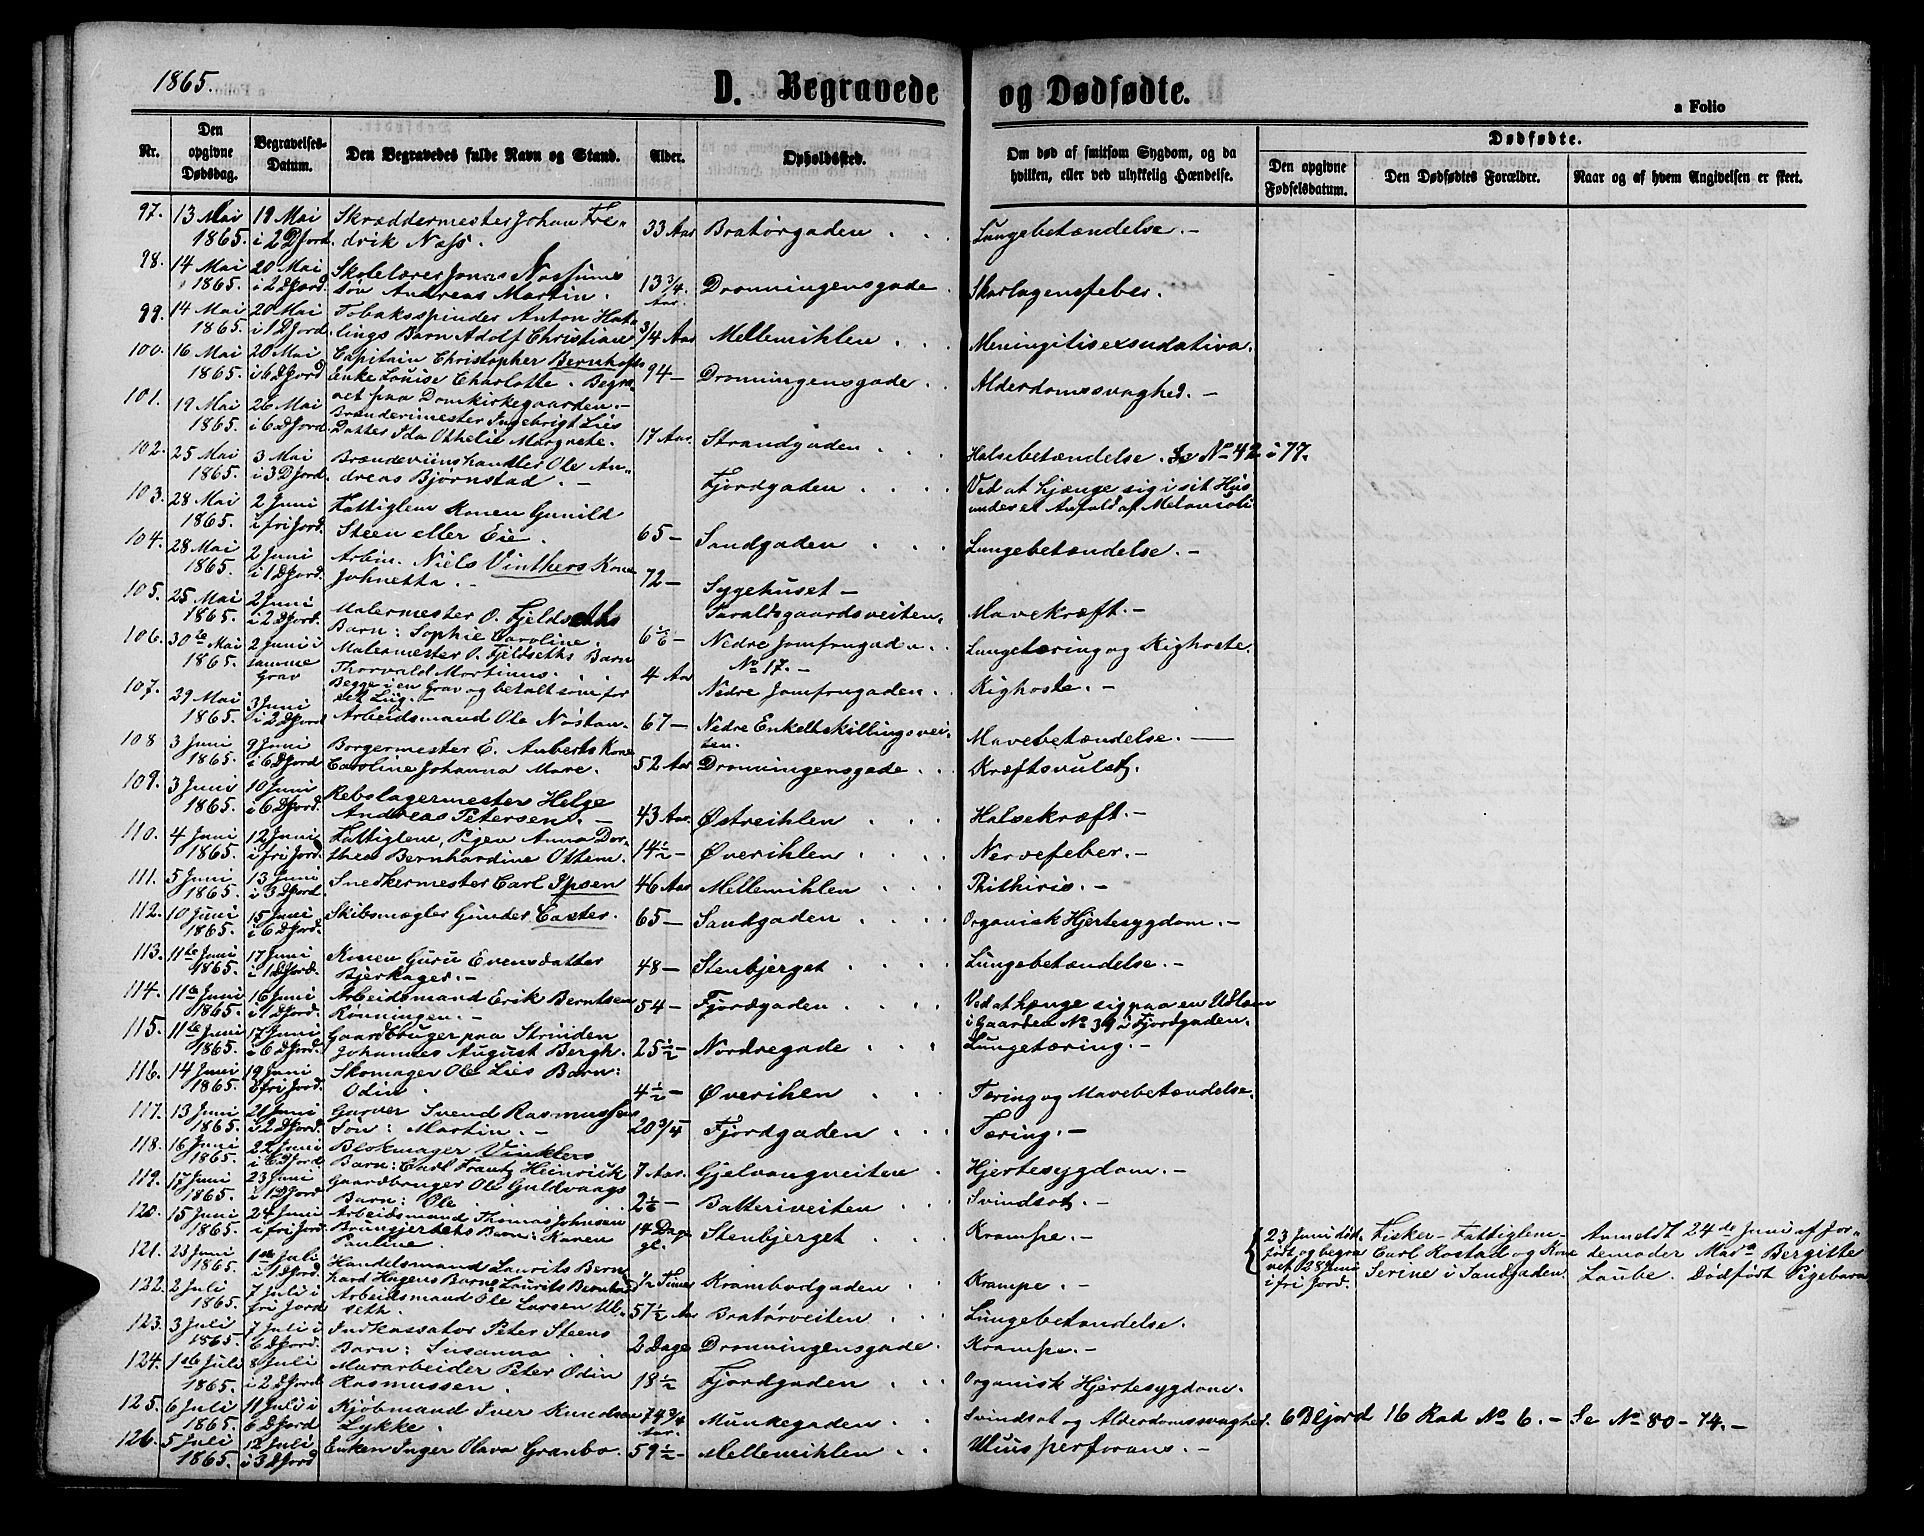 1865.
D. Begravede og Dødfødte.
a Folio
Nr.
Den opgivne Dødsdag.
Begravelses-Datum.
Den Begravedes fulde Navn og Stand.
Alder.
Opholdssted.
Om død af smitsom Sygdom, og da hvilken, eller ved ulykkelig Hændelse.
Dødfødte.
Den opgivne Fødselsdatum.
Den Dødfødtes Forældre.
Naar og af hvem Angivelsen er skeet.
97. 13 Mai 1865. 19 Mai i 2 D Jord. Skræddermester Johan Fredrik Nass. 33 Aar Bratørgaden Lungebetændelse.
98. 14 Mai 1865. 20 Mai i 2 D Jord. Skolelærer Jonas Søn Andreas Martin. 13 3/4 Aar. Dronningensgade Skarlagensfeber.
99. 14 Mai 1865. 20 Mai i 1 D Jord. Tobaksspinder Anton Barn Adolf Christian 3/4 Aar Mellemihlen Meningitis exsudativa.
100. 16 Mai 1865. 20 Mai i 6 D Jord Capitain Christopher Bernhofts Enke Louise Charlotte. Begravet paa Domkirkegaarden. 94 — Dronningensgade Alderdomssvaghed. —
101. 19 Mai 1865. 26 Mai i 6 D Jord. Ingebrigt Lies Datter Ida Othelie Margrete. 17 Aar. Strandgaden Halsebetændelse. Se No 42 i 77.
102. 25 Mai 1865. 3 Mai i 3 D Jord. Brændeviinshandler Ole Andreas Bjørnstad. — Fjordgaden Ved at hjænge sig i sit Huus under et Anfald af Melancoli
103. 28 Mai 1865. 2 Juni i fri Jord. Fattiglem Konen Gunild Steen eller Eie. 65 — Sandgaden Lungebetændelse. —
104. 28 Mai 1865. 2 Juni i 1 D Jord. Arbm. Niels Vinthers Kone Johnetta. — 72 — Sygehuset —
105. 25 Mai 1865. 2 Juni i 2 D Jord. Malermester O. Fjeldseths Barn: Sophie Caroline. Taraldsgaardsveiten. Mavekræft. —
106. 30te Mai 1865. 2 Juni i samme Grav Malermester O. Fjeldseths Barn Thorvald Martinus. Begge i en Grav og betalt som for det Liig. — 4 Aar Nedre Jomfrugaden No 17. — Lungetæring og Kighoste.
107. 29 Mai 1865. 3 Juni i 2 D Jord Arbeidsmand Ole Nøstan. 67 — Nedre Jomfrugaden Nedre Enkeltskillingsveiten. Kighoste. — Mavebetændelse. —
108 3 Juni 1865. 9 Juni i 6 D Jord Borgermester E. Auberts Kone Caroline Johanna Mare. 52 Aar Dronningensgade Kræftsvulst.
109. 3 Juni 1865. 10 Juni i 6 D Jord. Rebslagermester Helge Andreas Petersen. — 43 Aar. Østreihlen Halsekræft. —
110. 4 Juni 1865. 12 Juni i fri Jord. Fattiglem, Pigen Anna Dorthea Bernhardine Ottem. 14 1/2 — Øverihlen Nervefeber. —
111. 5 Juni 1865. 13 Juni i 3 D Jord. Snedkermester Carl Ipsen 46 Aar Mellemihlen Phthisis. —
112. 10 Juni 1865. 15 Juni i 6 D Jord. Skibsmægler Gunder Caster. 65 — Sandgaden Organisk Hjertesygdom. —
113. 11te Juni 1865. 17 Juni i 1 D Jord. Konen Guru Evensdatter Bjerkager. — 48 — Stenbjerget Lungebetændelse. —
114. 11te Juni 1865. 16 Juni i 1 D Jord. Arbeidsmand Erik Berntsen Rönningen. — 54 — Fjordgaden Ved at hænge sig paa en i Gaarden No 39 i Fjordgaden.
115. 11te Juni 1865. 17 Juni i 6 D Jord. Gaardbruger paa Strinden Johannes August Bergh. 25 1/2 — Nordregade Lungetæring. —
116. 14 Juni 1865. 19 Juni fri Jord. Skomager Ole Lies Barn: Odin. 4 1/2 — Øverihlen Tæring og Mavebetændelse.
117. 13 Juni 1865. 21 Juni i 2 D Jord. Garver Svend Rasmussens Søn: Martin. — 20 3/4 Fjordgaden Tæring. —
118. 16 Juni 1865. 22 Juni i 6 D Jord. Blokmager Vinklers Barn: Carl Frantz Heinrich 7 Aar. Gjelvangveiten Hjertesygdom. —
119. 17 Juni 1865. 23 Juni i 1 D Jord Gaardbruger Ole Guldvaags Barn: Ole Batteriveiten Svindsot. —
120. 15 Juni 1865. 24 Juni i fri Jord. Arbeidsmand Thomas Johnsen Barn: Karen Pauline. 14 Dage gl. Stenbjerget Krampe. —
{23 Juni død født og begravet 28 Juni i fri Jord. Fisker - Fattiglem - Carl Rostad og Kone Serine i Sandgaden. Anmeldt 24de Juni af Jordemoder Mare Bergitte Laube. Dødfødt Pigebarn
121. 23 Juni 1865. 1ste Juli i 1 D Jord. Handelsmand Laurits Bernhard Hagens Barn: Laurits Bernhard 1/2 Time Krambodgaden Krampe.
122. 2 Juli 1865. 7 Juli i fri Jord Arbeidsmand Ole Larsen Ulseth. 57 1/2 Aar Bratørveiten Lungebetændelse.
123. 3 Juli 1865. 7 Juli i 6 D Jord. Indkassator Peter Steens Barn: Susanna. 2 Dage Dronningensgade. Krampe. —
124. 1ste Juli 1865. 8 Juli i 2 D Jord. Murarbeider Peter Odin Rasmussen. 18 1/2 Fjordgaden Organisk Hjertesygdom.
125. 6 Juli 1865. 11 Juli i 6 D Jord Kjøbmand Iver Knudsen Lykke. 74 3/4 Aar. Munkegaden Svindsot og Alderdomssvaghed. 6 D Jord 16 Rad No 6. — Se No 80 - 74. —
126. 5 Juli 1865. 12 Juli i 3 D Jord Enken Inger Olava Granbo. 59 1/2 — Mellemihlen Ulcus perforans. —